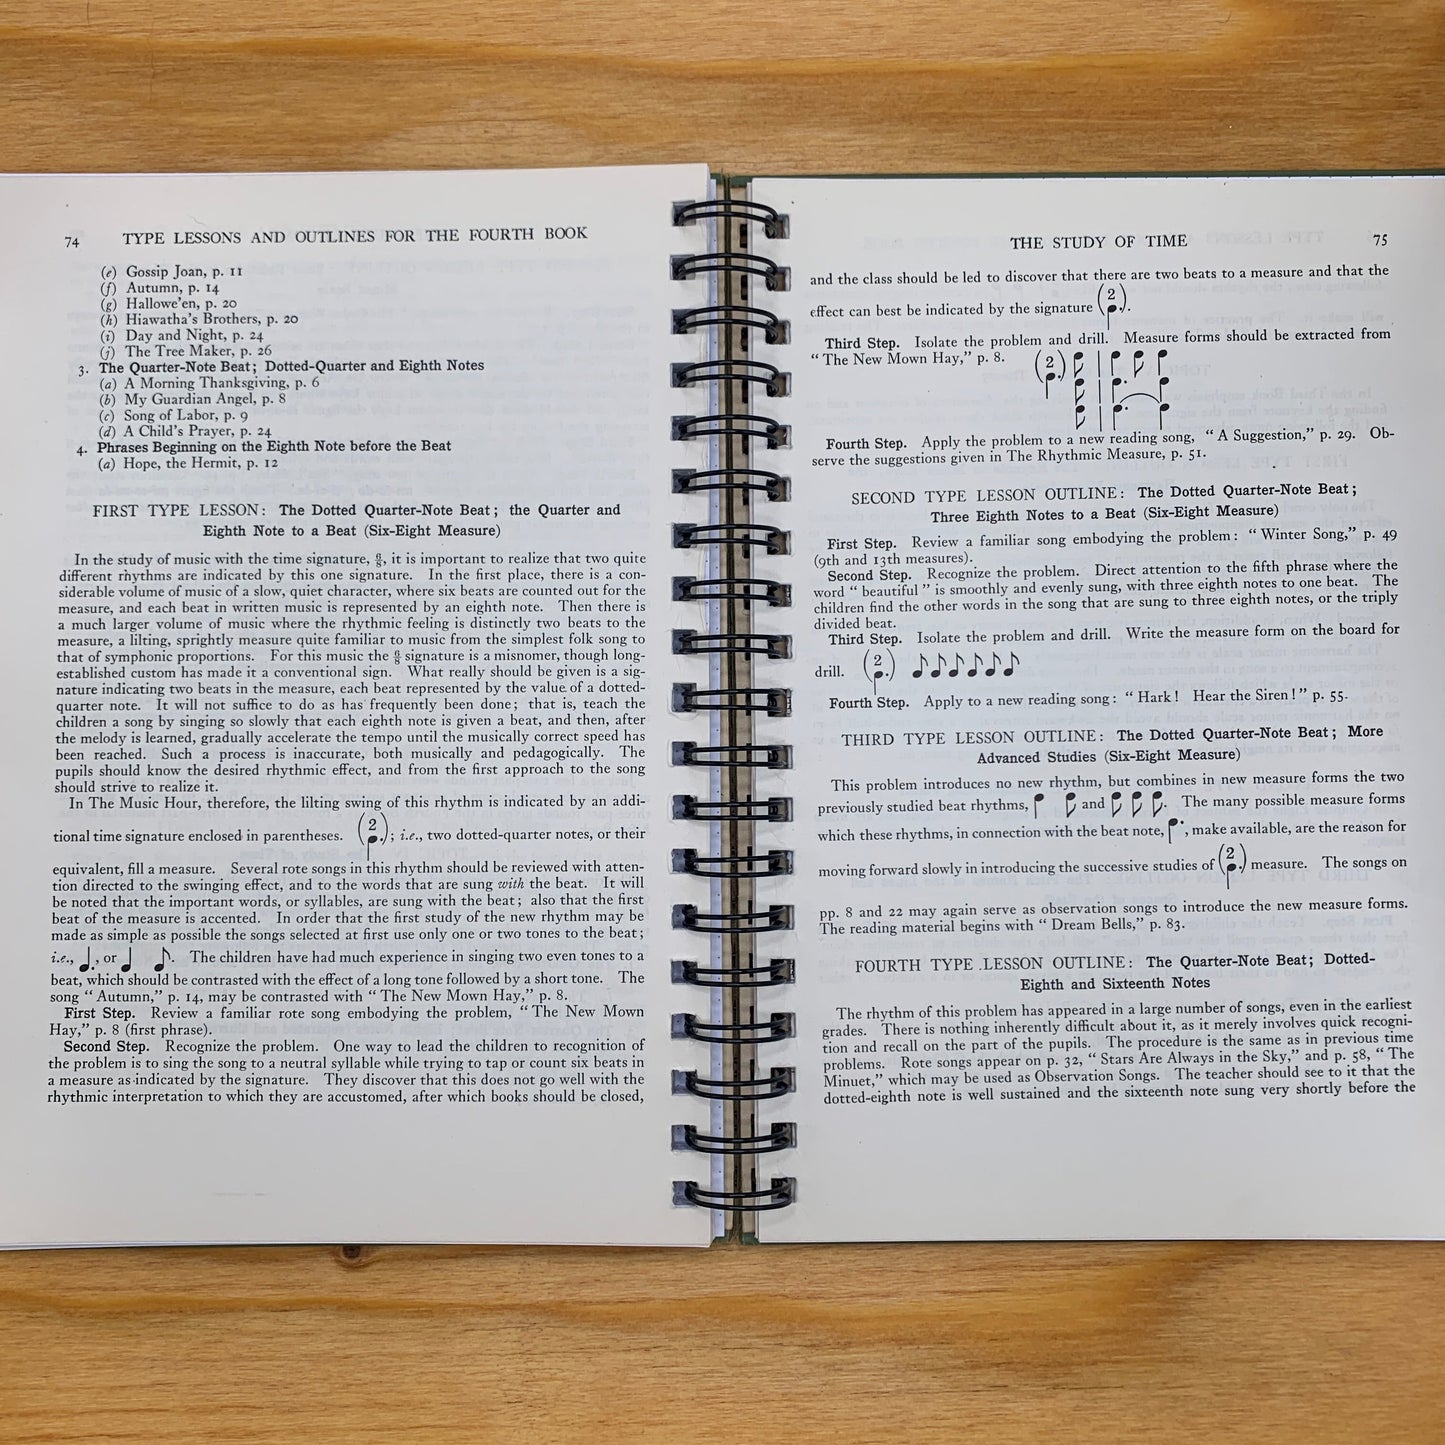 74 TYPE LESSONS AND OUTLINES FOR THE FOURTH BOOK
(e) Gossip Joan, p. 11
(f) Autumn, p. 14
(g) Hallowe'en, p. 20
(h) Hiawatha's Brothers, p. 20
(i) Day and Night, p. 24
(j) The Tree Maker, p. 26
3. The Quarter-Note Beat; Dotted-Quarter and Eighth Notes
(a) A Morning Thanksgiving, p. 6
(b) My Guardian Angel, p. 8
(c) Song of Labor, p. 9
(d) A Child's Prayer, p. 24
4. Phrases Beginning on the Eighth Note before the Beat
(a) Hope, the Hermit, p. 12
FIRST TYPE LESSON: The Dotted Quarter-Note Beat; the Quarter and
Eighth Note to a Beat (Six-Eight Measure)
In the study of music with the time signature, 6/8, it is important to realize that two quite
different rhythms are indicated by this one signature. In the first place, there is a con-
siderable volume of music of a slow, quiet character, where six beats are counted out for the
measure, and each beat in written music is represented by an eighth note. Then there is
a much larger volume of music where the rhythmic feeling is distinctly two beats to the
measure, a lilting, sprightly measure quite familiar to music from the simplest folk song to
that of symphonic proportions. For this music the 6/8 signature is a misnomer, though long-
established custom has made it a conventional sign. What really should be given is a sig-
nature indicating two beats in the measure, each beat represented by the value of a dotted-
quarter note. It will not suffice to do as has frequently been done; that is, teach the
children a song by singing so slowly that each eighth note is given a beat, and then, after
the melody is learned, gradually accelerate the tempo until the musically correct speed has
been reached. Such a process is inaccurate, both musically and pedagogically. The
pupils should know the desired rhythmic effect, and from the first approach to the song
should strive to realize it.
In The Music Hour, therefore, the lilting swing of this rhythm is indicated by an addi-
tional time signature enclosed in parentheses. (2); i.e., two dotted-quarter notes, or their
equivalent, fill a measure. Several rote songs in this rhythm should be reviewed with atten-
tion directed to the swinging effect, and to the words that are sung with the beat. It will
be noted that the important words, or syllables, are sung with the beat; also that the first
beat of the measure is accented. In order that the first study of the new rhythm may be
made as simple as possible the songs selected at first use only one or two tones to the beat;
i.e., ♩., or ♩ ♪. The children have had much experience in singing two even tones to a
beat, which should be contrasted with the effect of a long tone followed by a short tone. The
song "Autumn," p. 14, may be contrasted with "The New Mown Hay," p. 8.
First Step. Review a familiar rote song embodying the problem, "The New Mown
Hay," p. 8 (first phrase).
Second Step. Recognize the problem. One way to lead the children to recognition of
the problem is to sing the song to a neutral syllable while trying to tap or count six beats in
a measure as indicated by the signature. They discover that this does not go well with the
rhythmic interpretation to which they are accustomed, after which books should be closed,
THE STUDY OF TIME 75
and the class should be led to discover that there are two beats to a measure and that the
effect can best be indicated by the signature (2).
Third Step. Isolate the problem and drill. Measure forms should be extracted from
"The New Mown Hay," p. 8. (2)
Fourth Step. Apply the problem to a new reading song, "A Suggestion," p. 29. Ob-
serve the suggestions given in The Rhythmic Measure, p. 51.
SECOND TYPE LESSON OUTLINE: The Dotted Quarter-Note Beat;
Three Eighth Notes to a Beat (Six-Eight Measure)
First Step. Review a familiar song embodying the problem: "Winter Song," p. 49
(9th and 13th measures).
Second Step. Recognize the problem. Direct attention to the fifth phrase where the
word "beautiful" is smoothly and evenly sung, with three eighth notes to one beat. The
children find the other words in the song that are sung to three eighth notes, or the triply
divided beat.
Third Step. Isolate the problem and drill. Write the measure form on the board for
drill. (2) ♪♪♪♪♪♪
Fourth Step. Apply to a new reading song: "Hark! Hear the Siren!" p. 55.
THIRD TYPE LESSON OUTLINE: The Dotted Quarter-Note Beat; More
Advanced Studies (Six-Eight Measure)
This problem introduces no new rhythm, but combines in new measure forms the two
previously studied beat rhythms, ♩ ♪ and ♪ ♪ ♪. The many possible measure forms
which these rhythms, in connection with the beat note, ♩., make available, are the reason for
moving forward slowly in introducing the successive studies of (2) measure. The songs on
pp. 8 and 22 may again serve as observation songs to introduce the new measure forms.
The reading material begins with "Dream Bells," p. 83.
FOURTH TYPE LESSON OUTLINE: The Quarter-Note Beat; Dotted-
Eighth and Sixteenth Notes
The rhythm of this problem has appeared in a large number of songs, even in the earliest
grades. There is nothing inherently difficult about it, as it merely involves quick recogni-
tion and recall on the part of the pupils. The procedure is the same as in previous time
problems. Rote songs appear on p. 32, "Stars Are Always in the Sky," and p. 58, "The
Minuet," which may be used as Observation Songs. The teacher should see to it that the
dotted-eighth note is well sustained and the sixteenth note sung very shortly before the